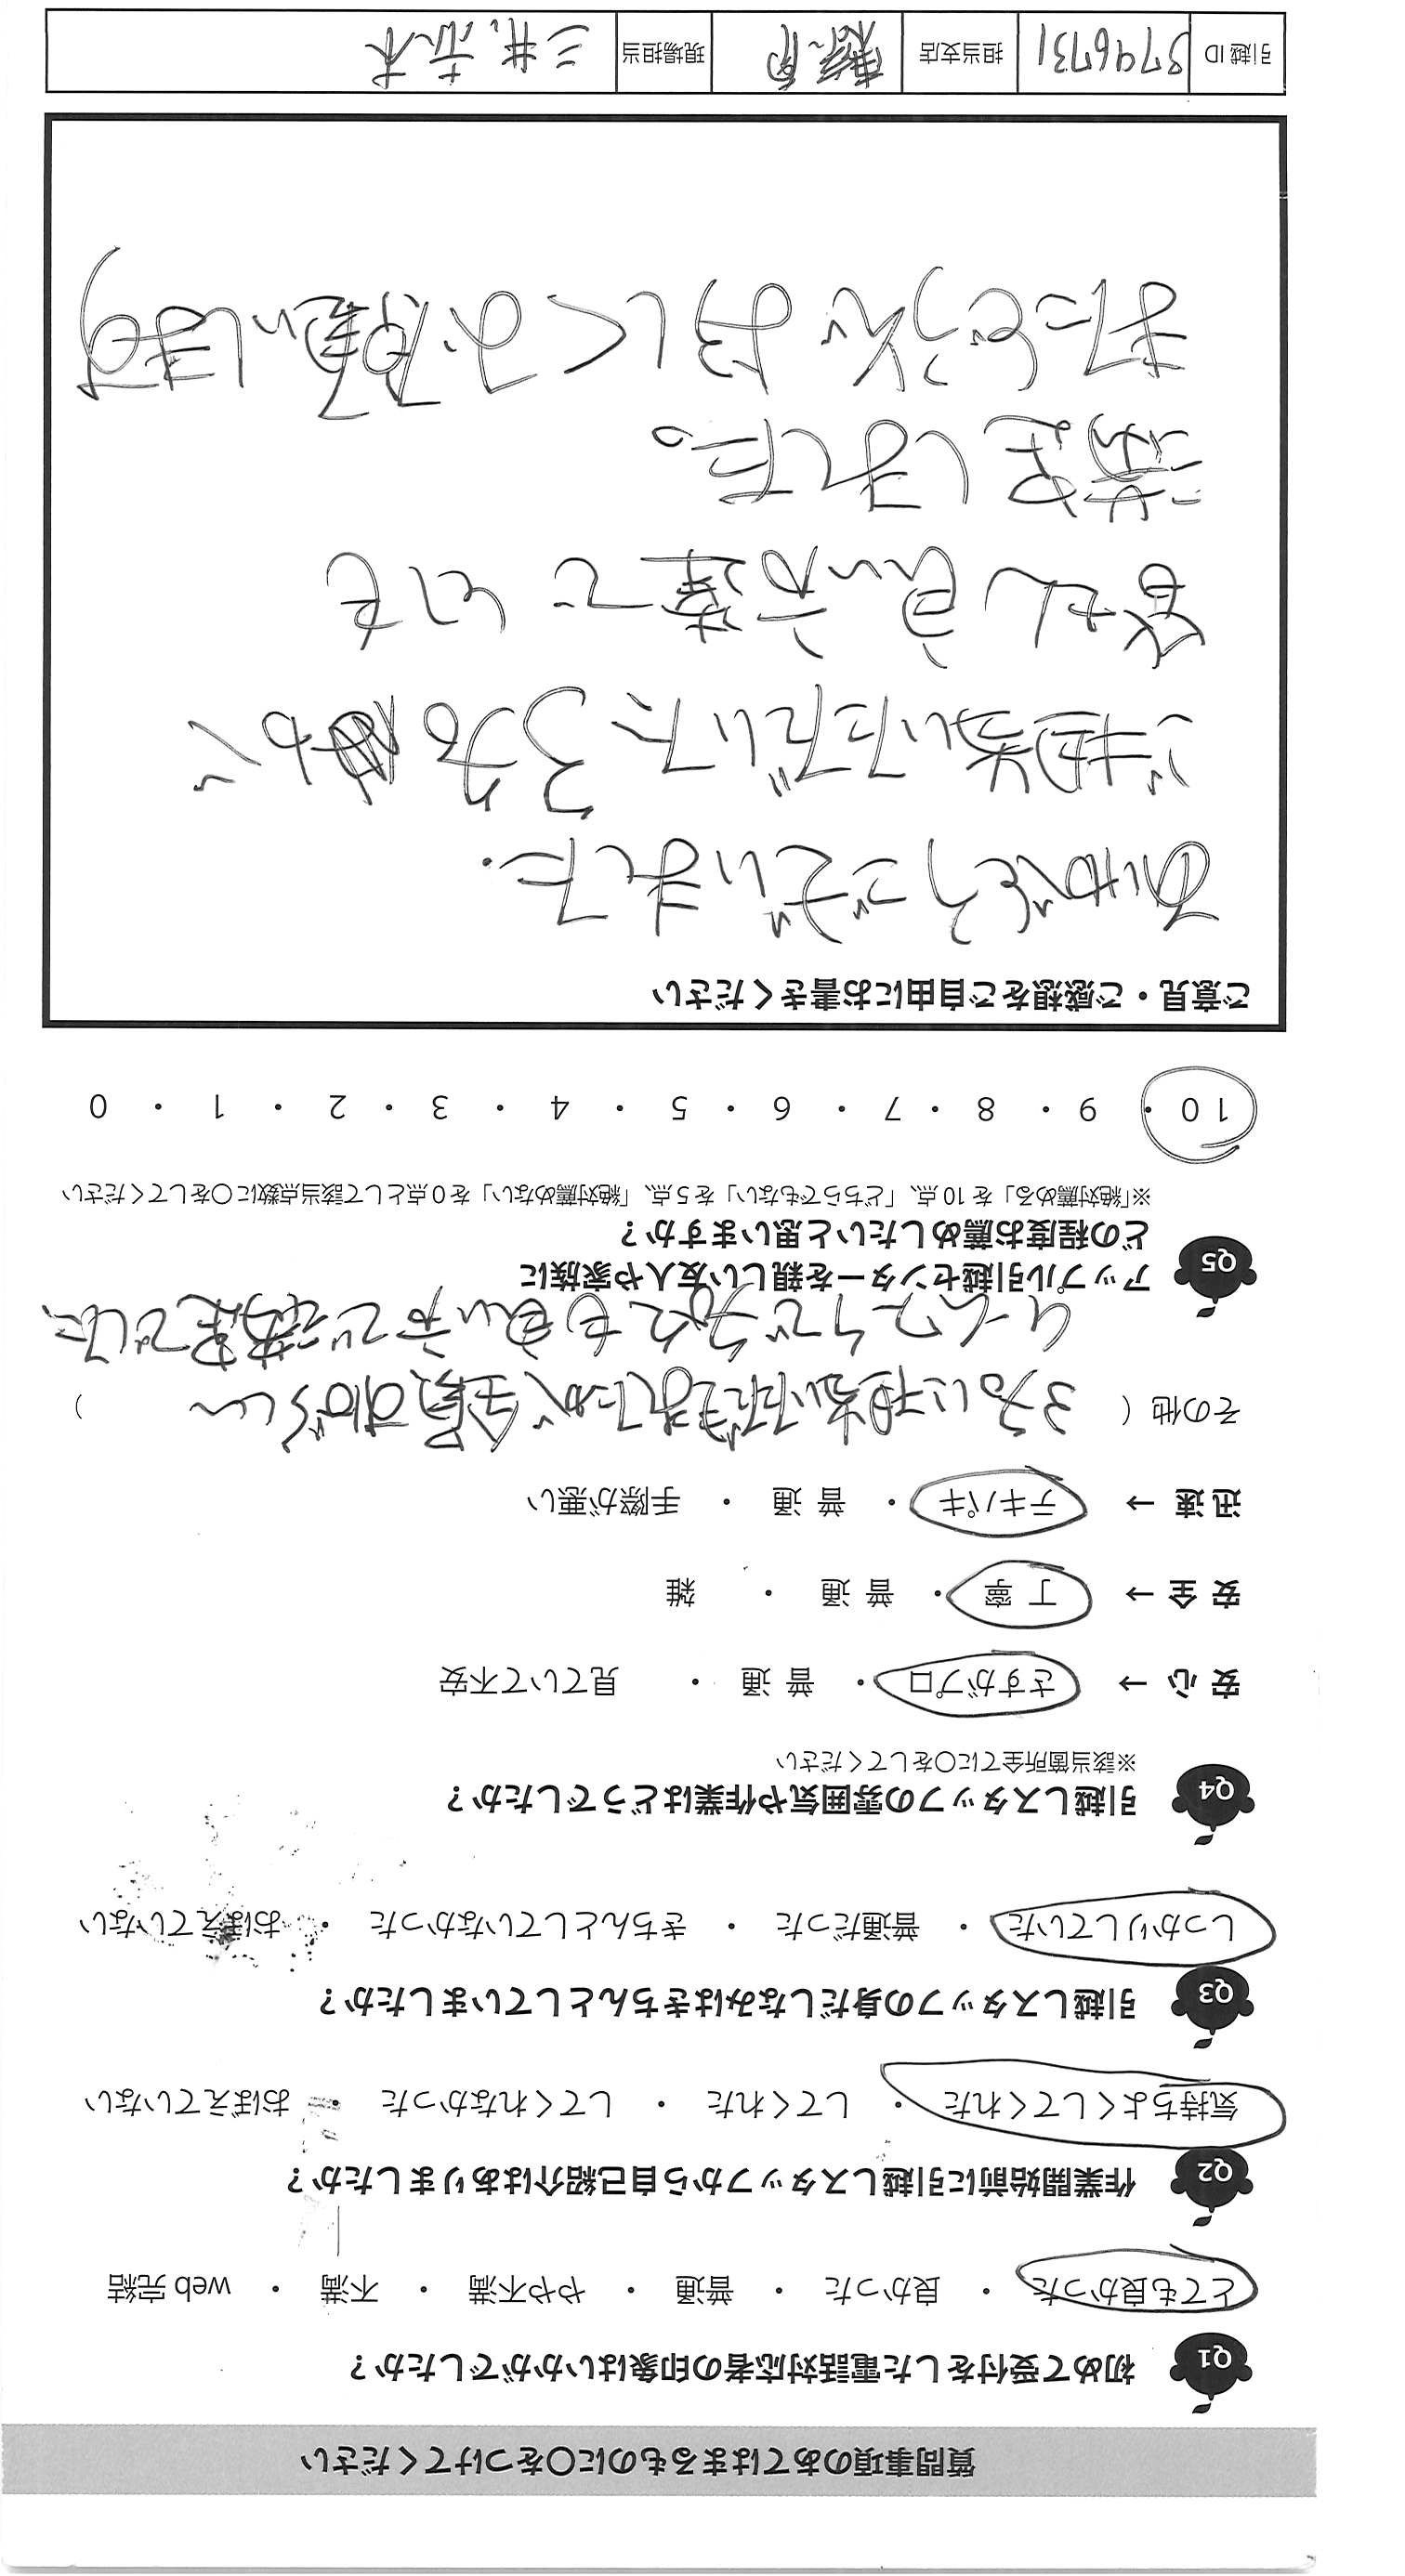 質問事項のあてはまるものに〇をつけてください
Q1 初めて受付をした電話対応者の印象はいかがでしたか?
とても良かった ・ 良かった ・ 普通 ・ やや不満 ・ 不満 ・ web 完結
Q2 作業開始前に引越しスタッフから自己紹介はありましたか?
気持ちよくしてくれた ・ してくれた ・ してくれなかった ・ おぼえていない
Q3 引越しスタッフの身だしなみはきちんとしていましたか?
しっかりしていた ・ 普通だった ・ きちんとしていなかった ・ おぼえていない
Q4 引越しスタッフの雰囲気や作業はどうでしたか?
※該当箇所全てに〇をしてください
安 心 → さすがプロ ・ 普 通 ・ 見ていて不安
安 全 → 丁 寧 ・ 普 通 ・ 雑
迅 速 → テキパキ ・ 普 通 ・ 手際が悪い
その他 ( 3方に担当いただきましたが全員すばらしい )
チームワークで 方々も良い方で満足でした、
Q5 アップル引越センターを親しい友人や家族に
どの程度お薦めしたいと思いますか?
※「絶対薦める」を 10 点、「どちらでもない」を 5 点、「絶対薦めない」を 0 点として該当点数に〇をしてください
10 ・ 9 ・ 8 ・ 7 ・ 6 ・ 5 ・ 4 ・ 3 ・ 2 ・ 1 ・ 0
ご意見・ご感想をご自由にお書きください
ありがとうございました.
ご担当いただいた 3方 が
皆さん良い方達で とても
満足しました。
またどうぞよろしくお願いします
引越 ID 3796731 担当支店 現場担当 三井, 高木